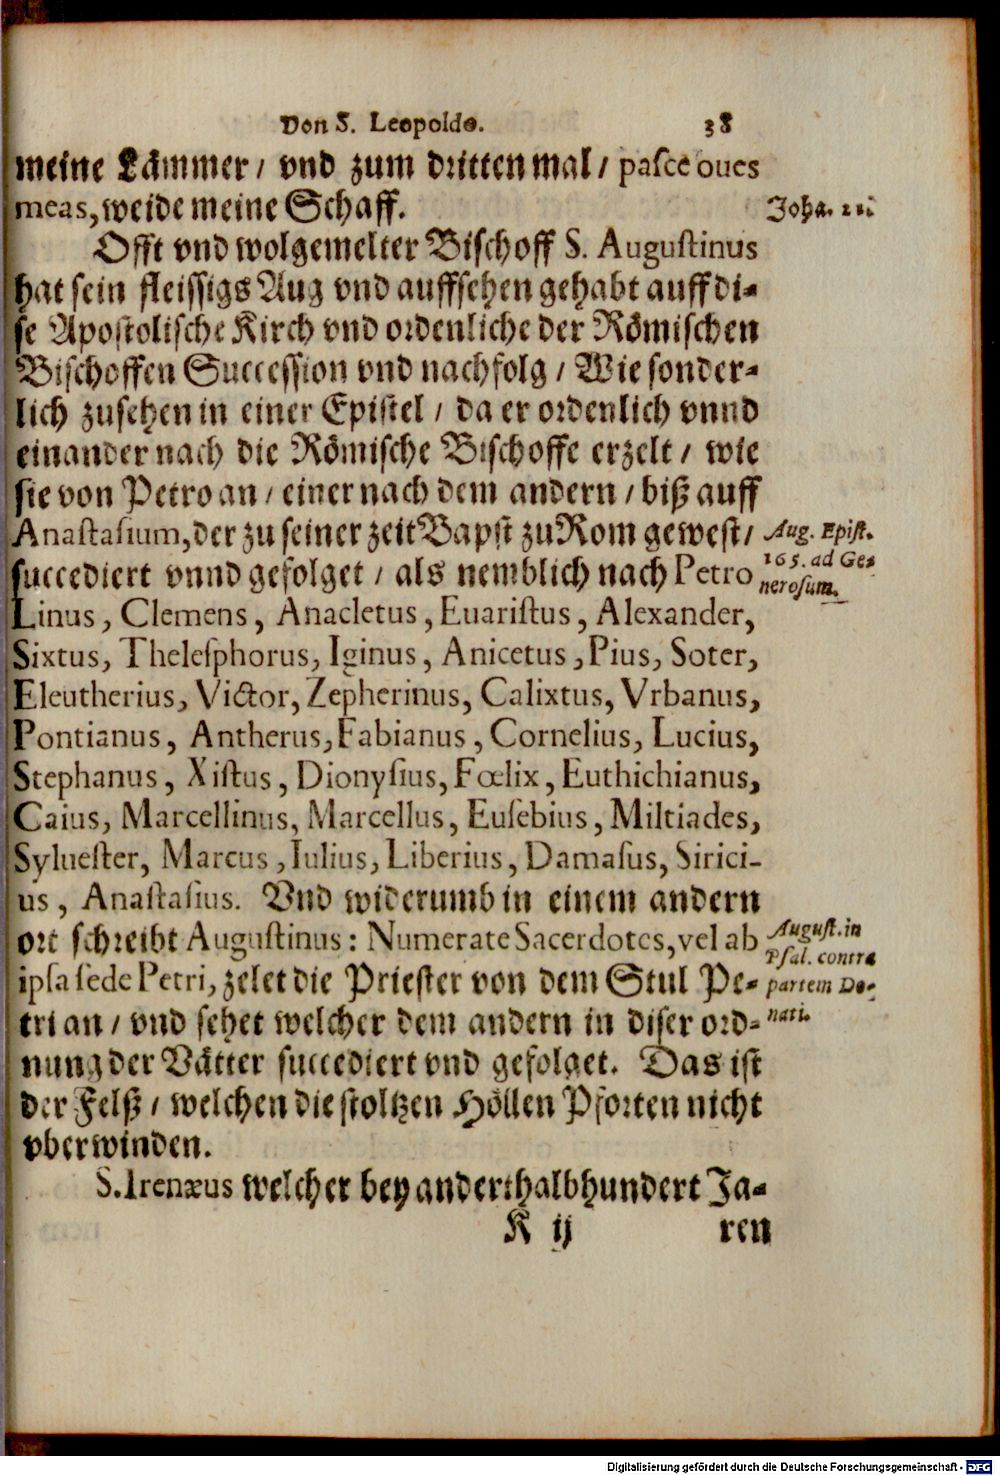 Von S. Leopoldo. 38
meine Lämmer / vnd zum dritten mal / pasce oues
meas, weide meine Schaff.
Joha. 21.
Offt vnd wolgemelter Bischoff S. Augustinus
hat sein fleissigs Aug vnd auffsehen gehabt auff di-
se Apostolische Kirch vnd ordenliche der Römischen
Bischoffen Succession vnd nachfolg / Wie sonder-
lich zusehen in einer Epistel / da er ordenlich vnnd
einander nach die Römische Bischoffe erzelt / wie
sie von Petro an / einer nach dem andern / biß auff
Anastasium, der zu seiner zeit Bapst zu Rom gewest /
succediert vnnd gefolget / als nemblich nach Petro
Aug. Epist.
165. ad Ge-
nerosum.
Linus, Clemens, Anacletus, Euaristus, Alexander,
Sixtus, Thelesphorus, Iginus, Anicetus, Pius, Soter,
Eleutherius, Victor, Zepherinus, Calixtus, Vrbanus,
Pontianus, Antherus, Fabianus, Cornelius, Lucius,
Stephanus, Xistus, Dionysius, Fœlix, Euthichianus,
Caius, Marcellinus, Marcellus, Eusebius, Miltiades,
Syluester, Marcus, Iulius, Liberius, Damasus, Sirici-
us, Anastasius. Vnd widerumb in einem andern
ort schreibt Augustinus: Numerate Sacerdotes, vel ab
ipsa sede Petri, zelet die Priester von dem Stul Pe-
tri an / vnd sehet welcher dem andern in diser ord-
August. in
Psal. contra
partem Do-
nati.
nung der Vätter succediert vnd gefolget. Das ist
der Felß / welchen die stoltzen Höllen Pforten nicht
vberwinden.
S. Irenæus welcher bey anderthalbhundert Ja-
K ij ren
Digitalisierung gefördert durch die Deutsche Forschungsgemeinschaft - DFG